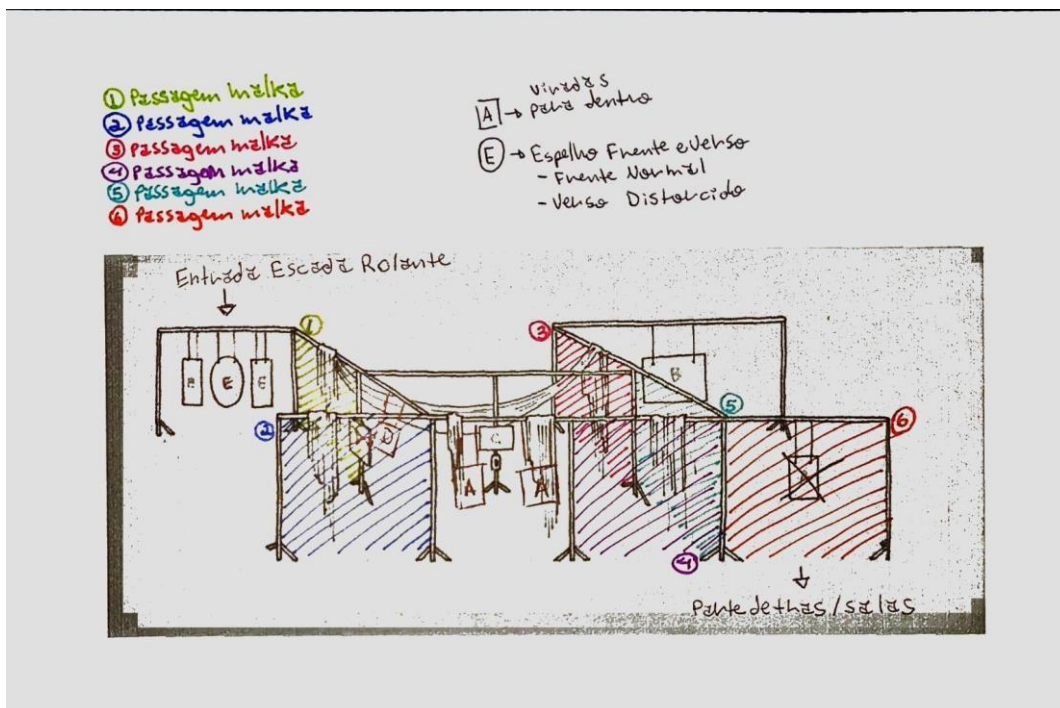 ① Passagem malka
② Passagem malka
③ Passagem malka
④ Passagem malka
⑤ Passagem malka
⑥ Passagem malka
A → viradas
para dentro
E → Espelho Frente e Verso
- Frente Normal
- Verso Distorcido
Entrada Escada Rolante
1
3
E E
B
5
6
2
D
C
A A
4
Parte de trás/salas